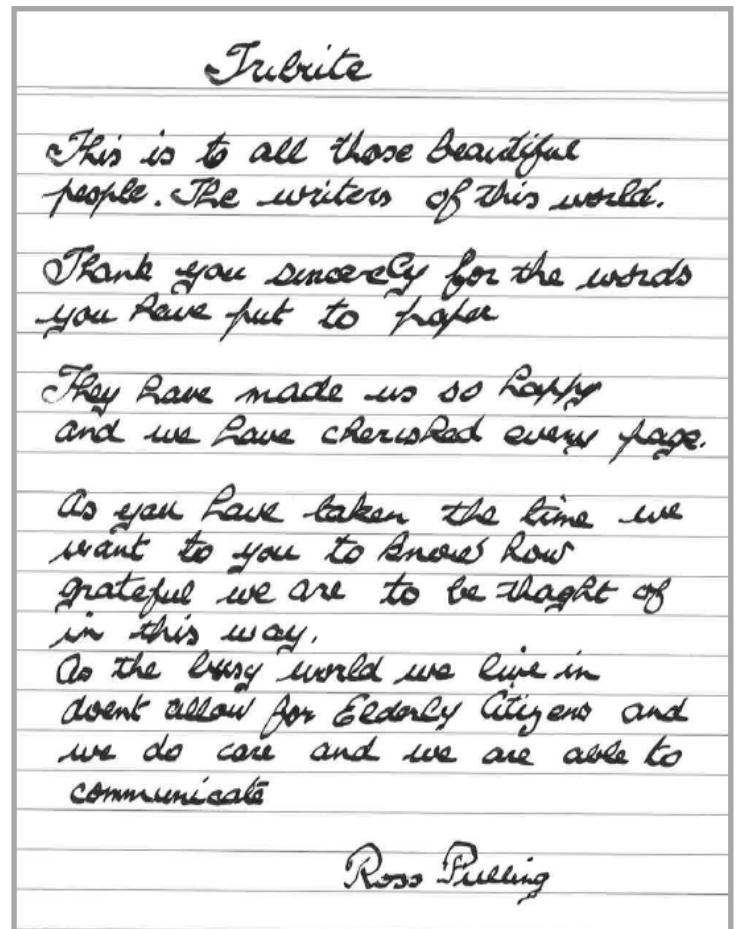 Tribute
This is to all those beautiful
people. The writers of this world.
Thank you sincerely for the words
you have put to paper
They have made us so happy
and we have cherished every page.
As you have taken the time we
want to you to know how
grateful we are to be thaght of
in this way.
As the busy world we live in
doent allow for Elderly Citizens and
we do care and we are able to
communicate
Ross Pulling